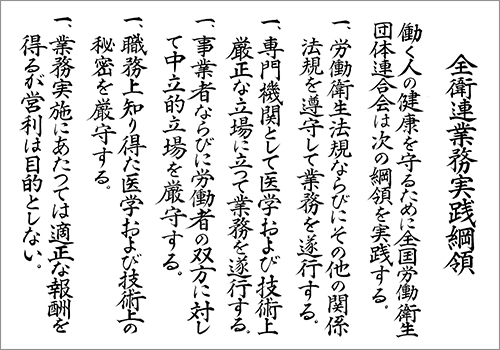 全衛連業務実践綱領
働く人の健康を守るために全国労働衛生
団体連合会は次の綱領を実践する。
一、労働衛生法規ならびにその他の関係
法規を遵守して業務を遂行する。
一、専門機関として医学および技術上
厳正な立場に立つて業務を遂行する。
一、事業者ならびに労働者の双方に対し
て中立的立場を厳守する。
一、職務上知り得た医学および技術上の
秘密を厳守する。
一、業務実施にあたつては適正な報酬を
得るが営利は目的としない。